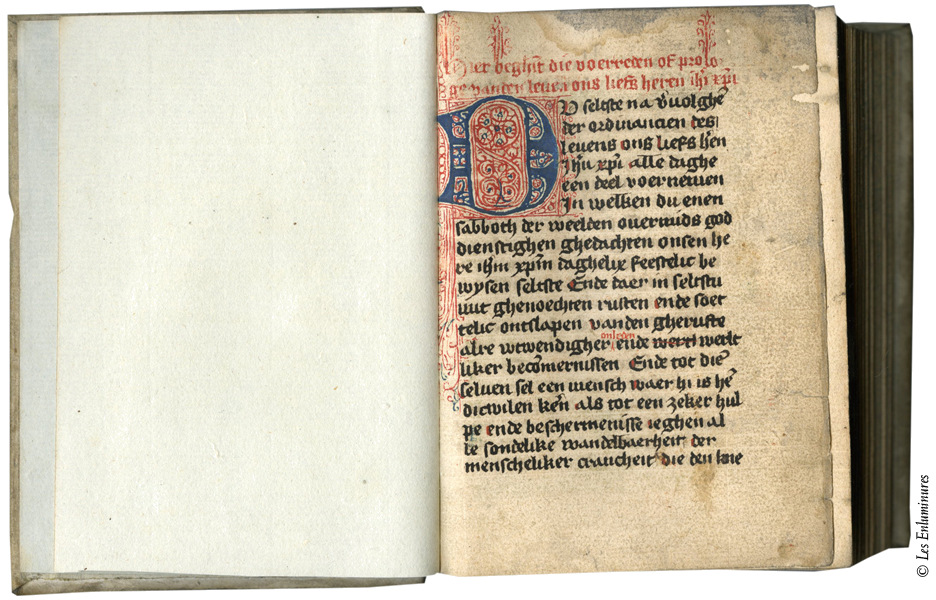 Hier beghīt die voerreden oft prolo
ge vanden leuen ons liefs heren ihū xp̄i
DU selste na v̄uolghē
der ordinancien des
leuens ons liefs h̄en
Ihū xp̄i alle daghe
een deel voernemen
In welken du enen
sabboth der weelden ouermids god
dienstighen ghedachten onsen he
re ihm̄ xp̄m daghelix feestelic be
wysen selste Ende daer in selstu
wt ghenoechten rusten ende soet
telic ontslapen vanden gheruste
alre wtwendigher onleden ende werlt
liker becōmernissen Ende tot diē
seluen sel een mensch waer hi is hē
dicwilen kēn als tot een zeker hul
pe ende beschermenisse ieghen al
le sondelike wandelbaerheit der
menscheliker crancheit die den
© Les Enluminures